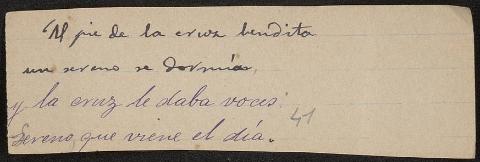 Al pie de la cruz bendita
un sereno se dormía,
y la cruz le daba voces:
Sereno, que viene el día.
41